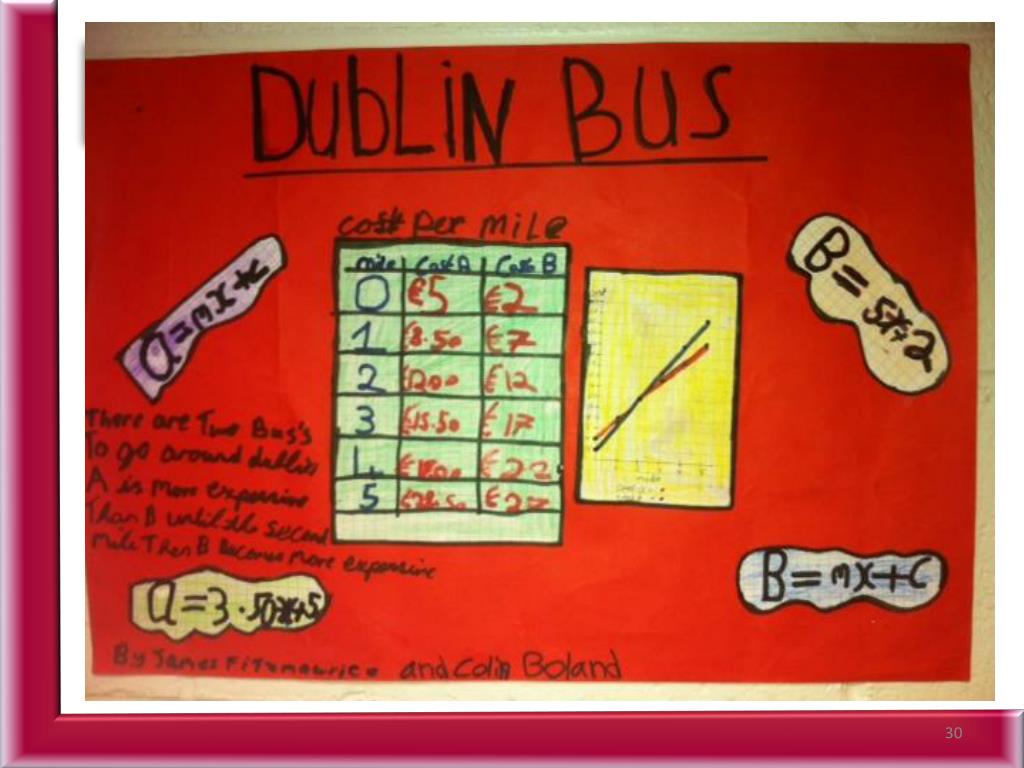 DUBLIN BUS
cost Per mile
mile Cost A Cost B
0 €5 €2
1 €8.50 €7
2 €12.00 €12
3 €15.50 €17
4 €22
5 €27
a=mx+c
B=5x+2
There are Two Bus's
To go around dublin
A is more expensive
Than B until the second
mile Then B Becomes more expensive
a=3.50x+5
B=mx+c
By James Fitzmaurice and Colin Boland
30